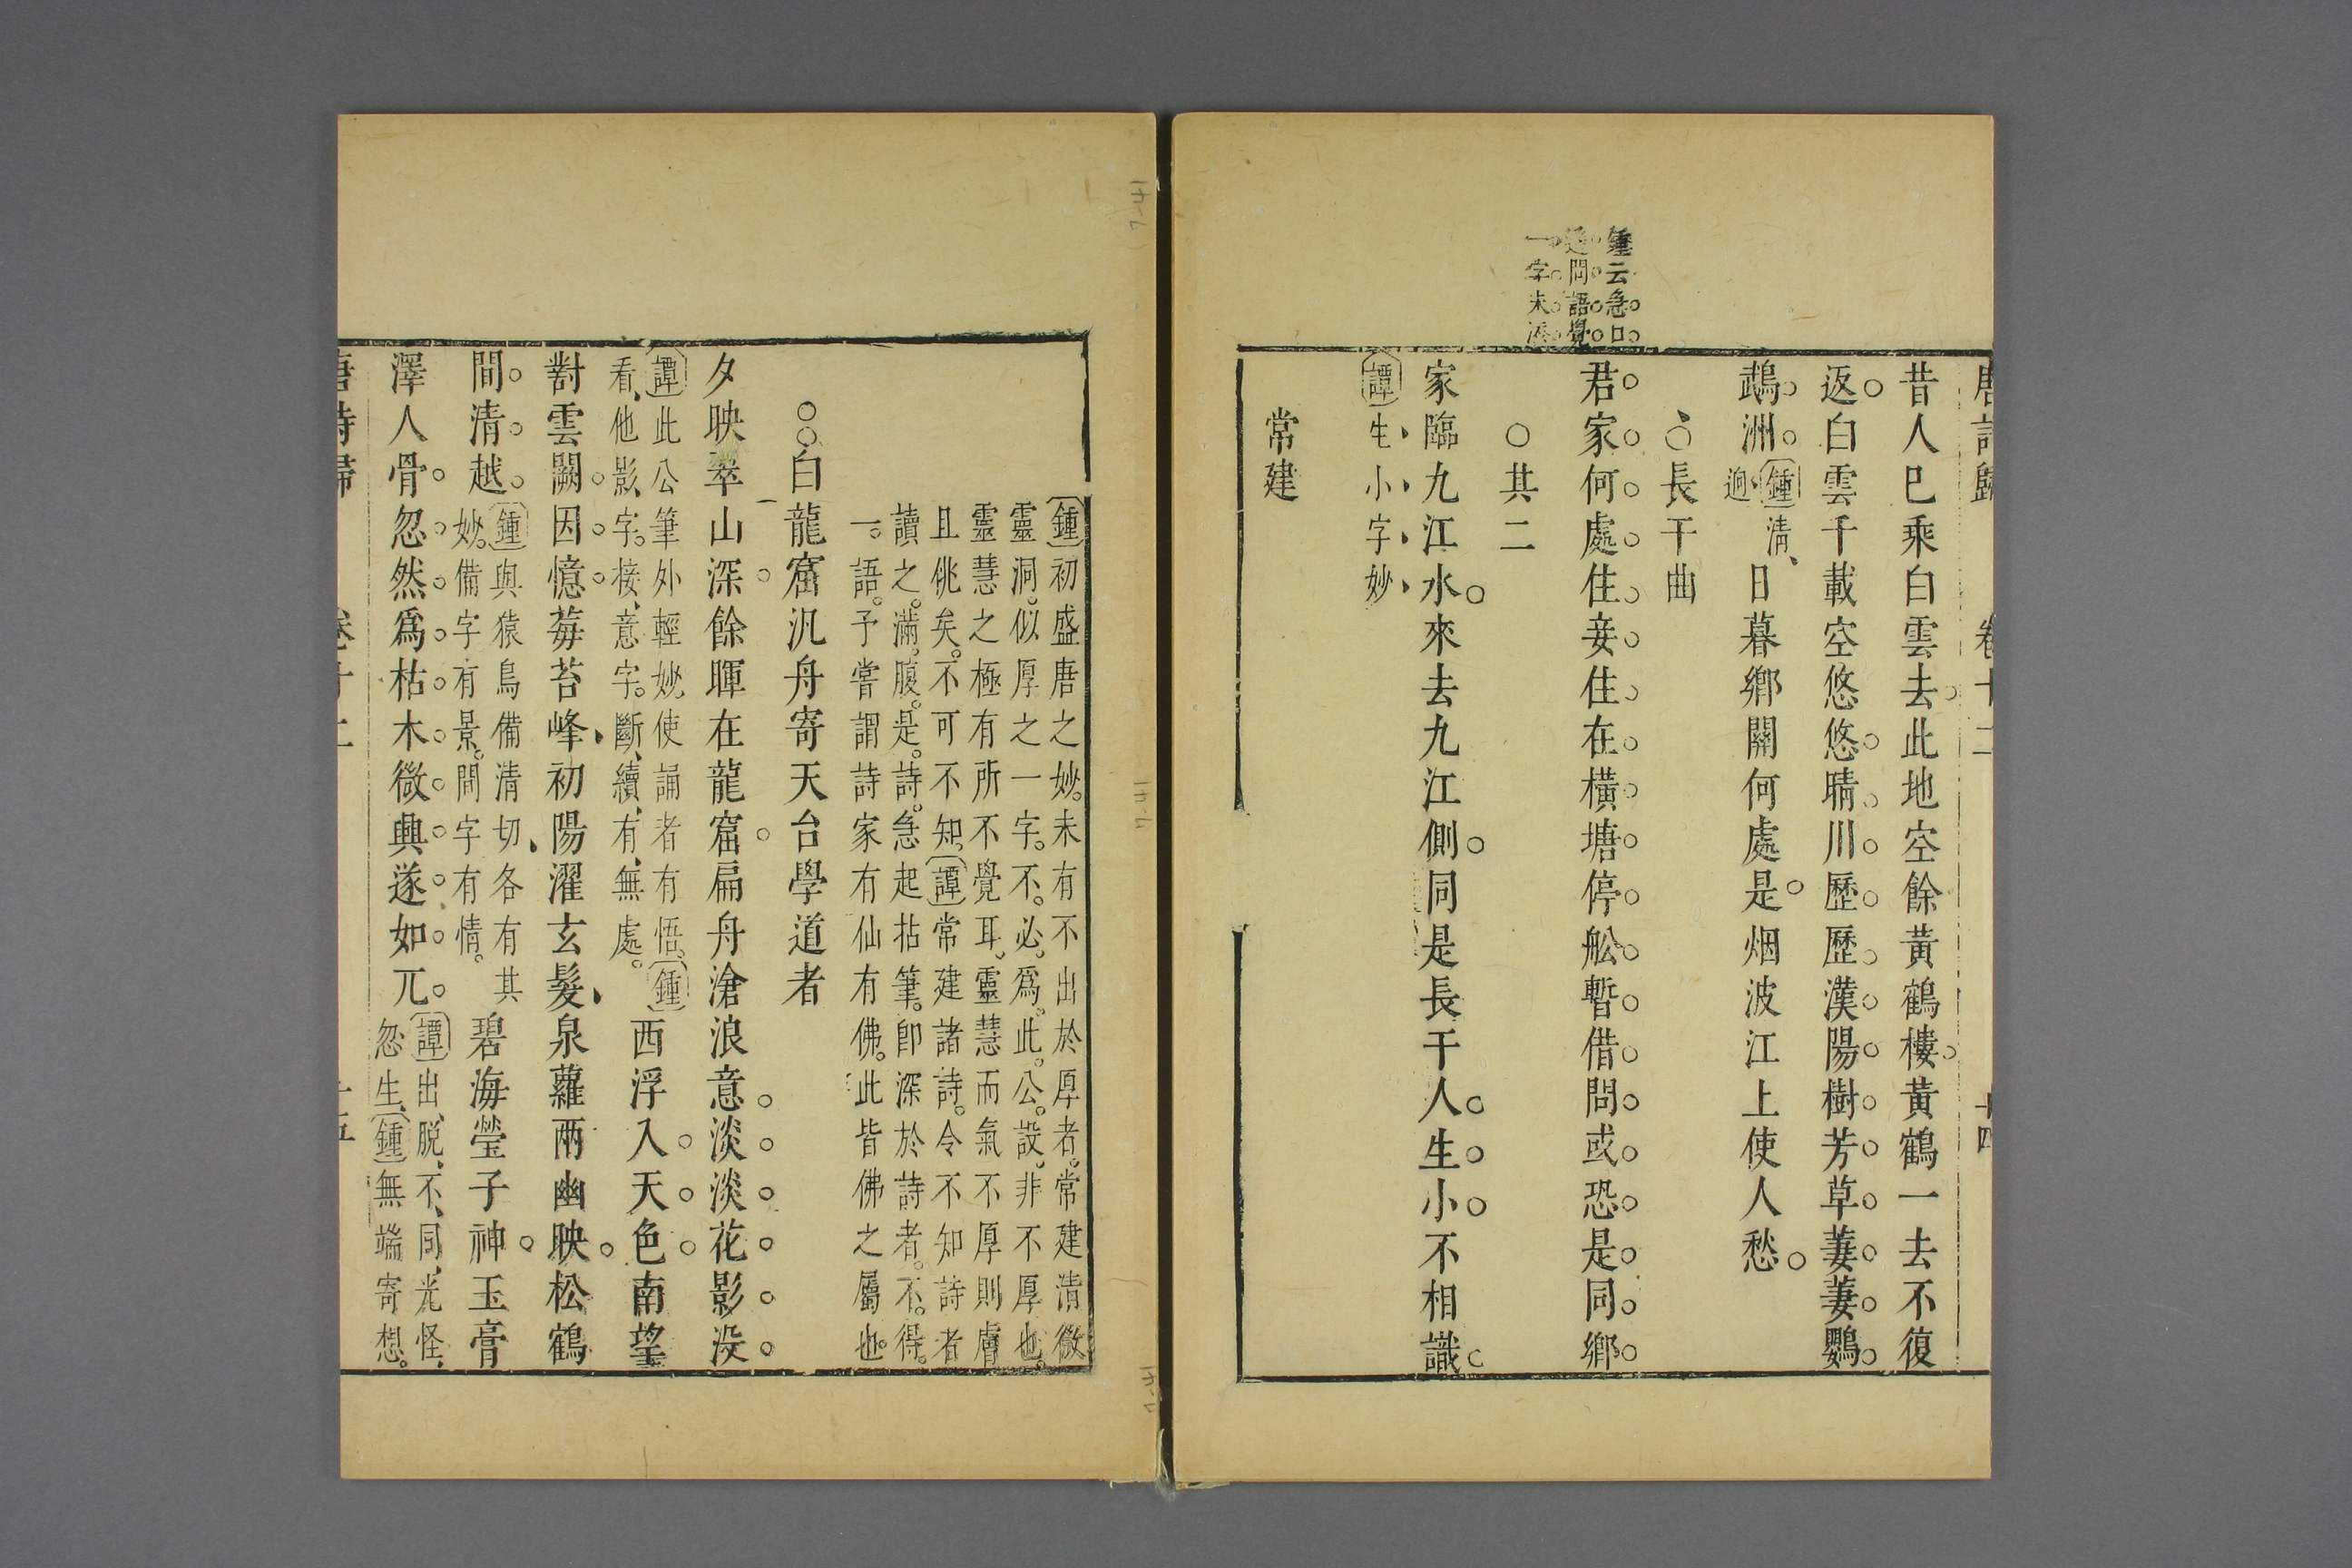 唐詩歸 卷十二 十四
昔人已乘白雲去此地空餘黃鶴樓黃鶴一去不復
返白雲千載空悠悠晴川歷歷漢陽樹芳草萋萋鸚
鵡洲
鍾清
迥
日暮鄉關何處是烟波江上使人愁
長干曲
鍾云急口
遙問語覺
一字未添
君家何處住妾住在橫塘停舩暫借問或恐是同鄉
其二
家臨九江水來去九江側同是長干人生小不相識
譚生小字妙
常建
鍾初盛唐之妙未有不出於厚者常建清微
靈洞似厚之一字不必爲此公設非不厚也
靈慧之極有所不覺耳靈慧而氣不厚則膚
且佻矣不可不知譚常建諸詩令不知詩者
讀之滿腹是詩急起拈筆卽深於詩者不得
一語予嘗謂詩家有仙有佛此皆佛之屬也
白龍窟汎舟寄天台學道者
夕映翠山深餘暉在龍窟扁舟滄浪意淡淡花影没
譚此公筆外輕妙使誦者有悟鍾
看他影字接意字斷續有無處
西浮入天色南望
對雲闕因憶莓苔峰初陽濯玄髮泉蘿兩幽映松鶴
間清越
鍾與猿鳥備清切各有其
妙備字有景間字有情
碧海瑩子神玉膏
澤人骨忽然爲枯木微興遂如兀
譚出脱不同光怪
忽生鍾無端寄想
唐詩歸 卷十二 十五